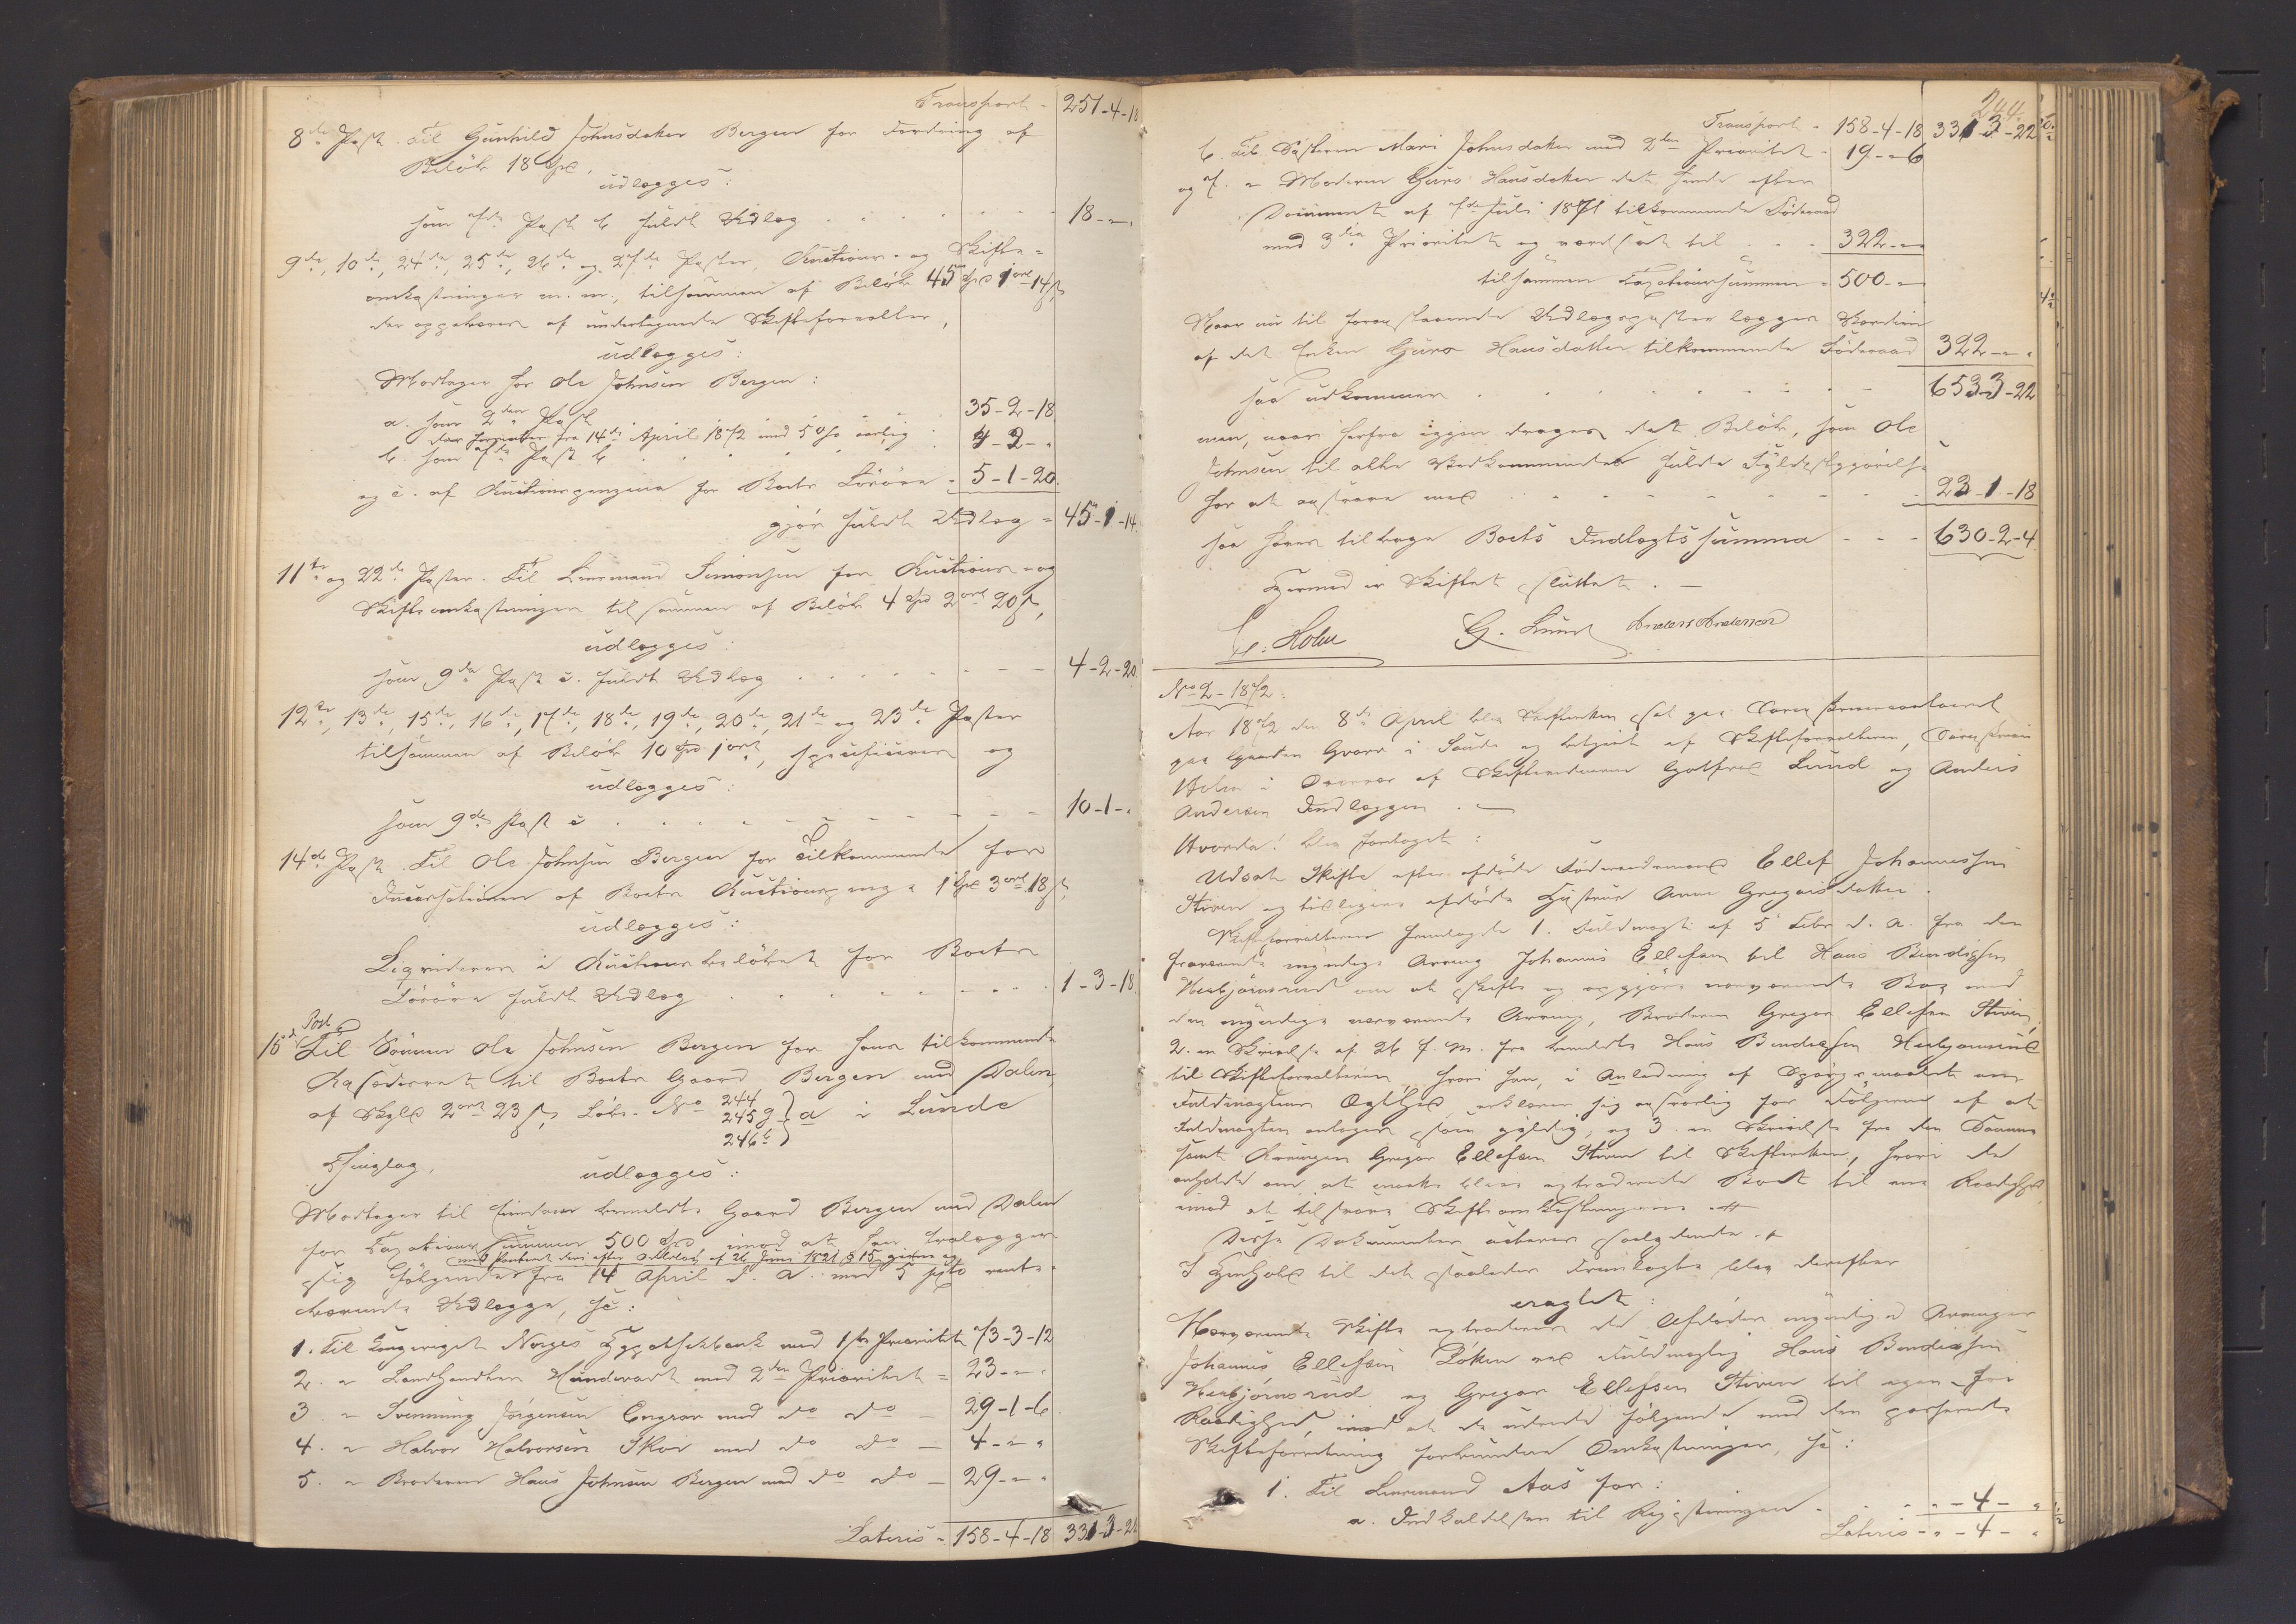 Transport - 257-4-18
8de Post. Til Gunhild Johnsdatter Bergen for Fordring af
Beløb 18 Spd.
udlægges:
som 7de Post b fuldt Udlæg . . . . . 18-"-"
9de, 10de, 24de, 25de, 26de og 27de Poster, Auctions- og Skifte-
omkostninger m. m., tilsammen af Beløb 45 Spd 1 ort 14 s,
der oppebæres af undertegnede Skifteforvalter,
udlægges:
Modtages hos Ole Johnsen Bergen:
a. som 2den Post 35-2-18
der forrentes fra 14de April 1872 med 5 % aarlig
b. som 7de Post b . . . . 4-2-"
og c. af Auctionspengene for Boets Løsøre - 5-1-20
gjør fuldt Udlæg = 45-1-14
11te og 22de Poster. Til Lensmand Simonsen for Auctions- og
Skifteomkostninger tilsammen af Beløb 4 Spd 2 ort 20 s,
udlægges:
som 9de Post c. fuldt Udlæg . . . . . 4-2-20.
12te, 13de, 15de, 16de, 17de, 18de, 19de, 20de, 21de og 23de Poster
tilsammen af Beløb 10 Spd 1 ort, specificeres og
udlægges:
som 9de Post c . . . . . 10-1-"
14de Post. Til Ole Johnsen Bergen for Tilkommende for
Incassationen af Boets Auctionspenge 1 Spd 3 ort 18 s,
udlægges:
Liqvideres i Auctionsbeløbet for Boets
Løsøre fuldt Udlæg . . . . . 1-3-18.
Post
15de Til Sønnen Ole Johnsen Bergen for hans tilkommende
Aasædesret til Boets Gaard Bergen med Dalen,
af Skyld 2 ort 23 s, Løbe-No 244
245 g } a i Lunde
246 b
Thinglag,
udlægges:
Modtager til Eiendom bemeldte Gaard Bergen med Dalen
for Taxationssummen 500 Spd imod at han fralægger
med Panteret deri efter Odelslov af 26 Juni 1821 § 15 givne og
sig følgende fra 14 April d. A. med 5 pCto rente-
bærende Udlægge, sc:
1. Til Kongeriget Norges Hypothekbank med 1ste Prioritet 73-3-12
2. " Landhandler Hundevadt med 2den Prioritet = 23-"-"
3. " Svennung Jørgensen Engrav med do do - 29-1-6
4. " Halvor Halvorsen Skoe med do do - 4-"-"
5. " Broderen Hans Johnsen Bergen med do do - 29-"-"
Lateris - 158-4-18 331-3-22
244.
Transport - 158-4-18 331-3-22
6. Til Søsteren Mari Johnsdatter med 2den Prioritet - 19-"-6
og 7. " Moderen Guro Hansdatter det hende efter
Document af 7de Juli 1871 tilkommende Føderaad
med 3die Prioritet og værdsat til . . - 322-"-"
tilsammen Taxationssummen = 500-"-"
Naar nu til foranstaaende Udlægsposter lægges Værdien
af det Enken Guro Hansdatter tilkommende Føderaad 322-"-"
saa udkommer . . . . . 653-3-22
men, naar herfra igjen drages det Beløb, som Ole
Johnsen til alle Vedkommendes fulde Fyldestgjørelse
har at ansvare med . . . . . 23-1-18
saa haves tilbage Boets Indlagtssumma - - - 630-2-4
Hermed er Skiftet sluttet. -
C. Holm G. Lund Anders Andersen
No 2 - 1872.
Aar 1872 den 8de April blev Skifteretten sat paa Sorenskrivercontoiret
paa Gaarden Gvarv i Saude og betjent af Skifteforvalteren, Sorenskriver
Holm i Overvær af Skiftevidnerne Gotfred Lund og Anders
Andersen Indlæggen. -
Hvorda! blev foretaget:
Udsat Skifte efter afdøde Føderaadsmand Ellef Johannessen
Stiren og tidligere afdøde Hustrue Anne Gregarsdatter.
Skifteforvalteren fremlagde 1. Fuldmagt af 5 Febr. d. A. fra den
fraværende myndige Arving Johannes Ellefsen til Hans Bendiksen
Herbjørnsrud om at skifte og opgjøre nærværende Bo med
den myndige nærværende Arving, Broderen Gregar Ellefsen Stiren,
2. en Skrivelse af 26 f. M. fra bemeldte Hans Bendiksen Herbjørnsrud
til Skifteforvalteren, hvori han, i Anledning af Spørgsmaalet om
Fuldmagtens Ægthed, erklærer sig ansvarlig for Følgerne af at
Fuldmagten antages som gyldig, og 3. en Skrivelse fra den Samme
samt Arvingen Gregar Ellefsen Stiren til Skifteretten, hvori de
anholde om at maatte blive extraderede Boet til egen Raadighed,
imod at tilsvare Skifteomkostningerne. #
Disse Documenter acteres saalydende. +
I Henhold til det saaledes Fremlagte blev derefter
eragtet:
Nærværende Skifte extraderes de Afdødes myndige Arvinger
Johannes Ellefsen Løken ved Fuldmægtig Hans Bendiksen
Herbjørnsrud og Gregar Ellefsen Stiren til egen fri
Raadighed, imod at de udrede følgende med den passerede
Skifteforretning forbundne Omkostninger, sc:
1. Til Lensmand Aas for:
a. Indkaldelsen til Registreringen - . . " - 4 - "
Lateris - " - 4 - "